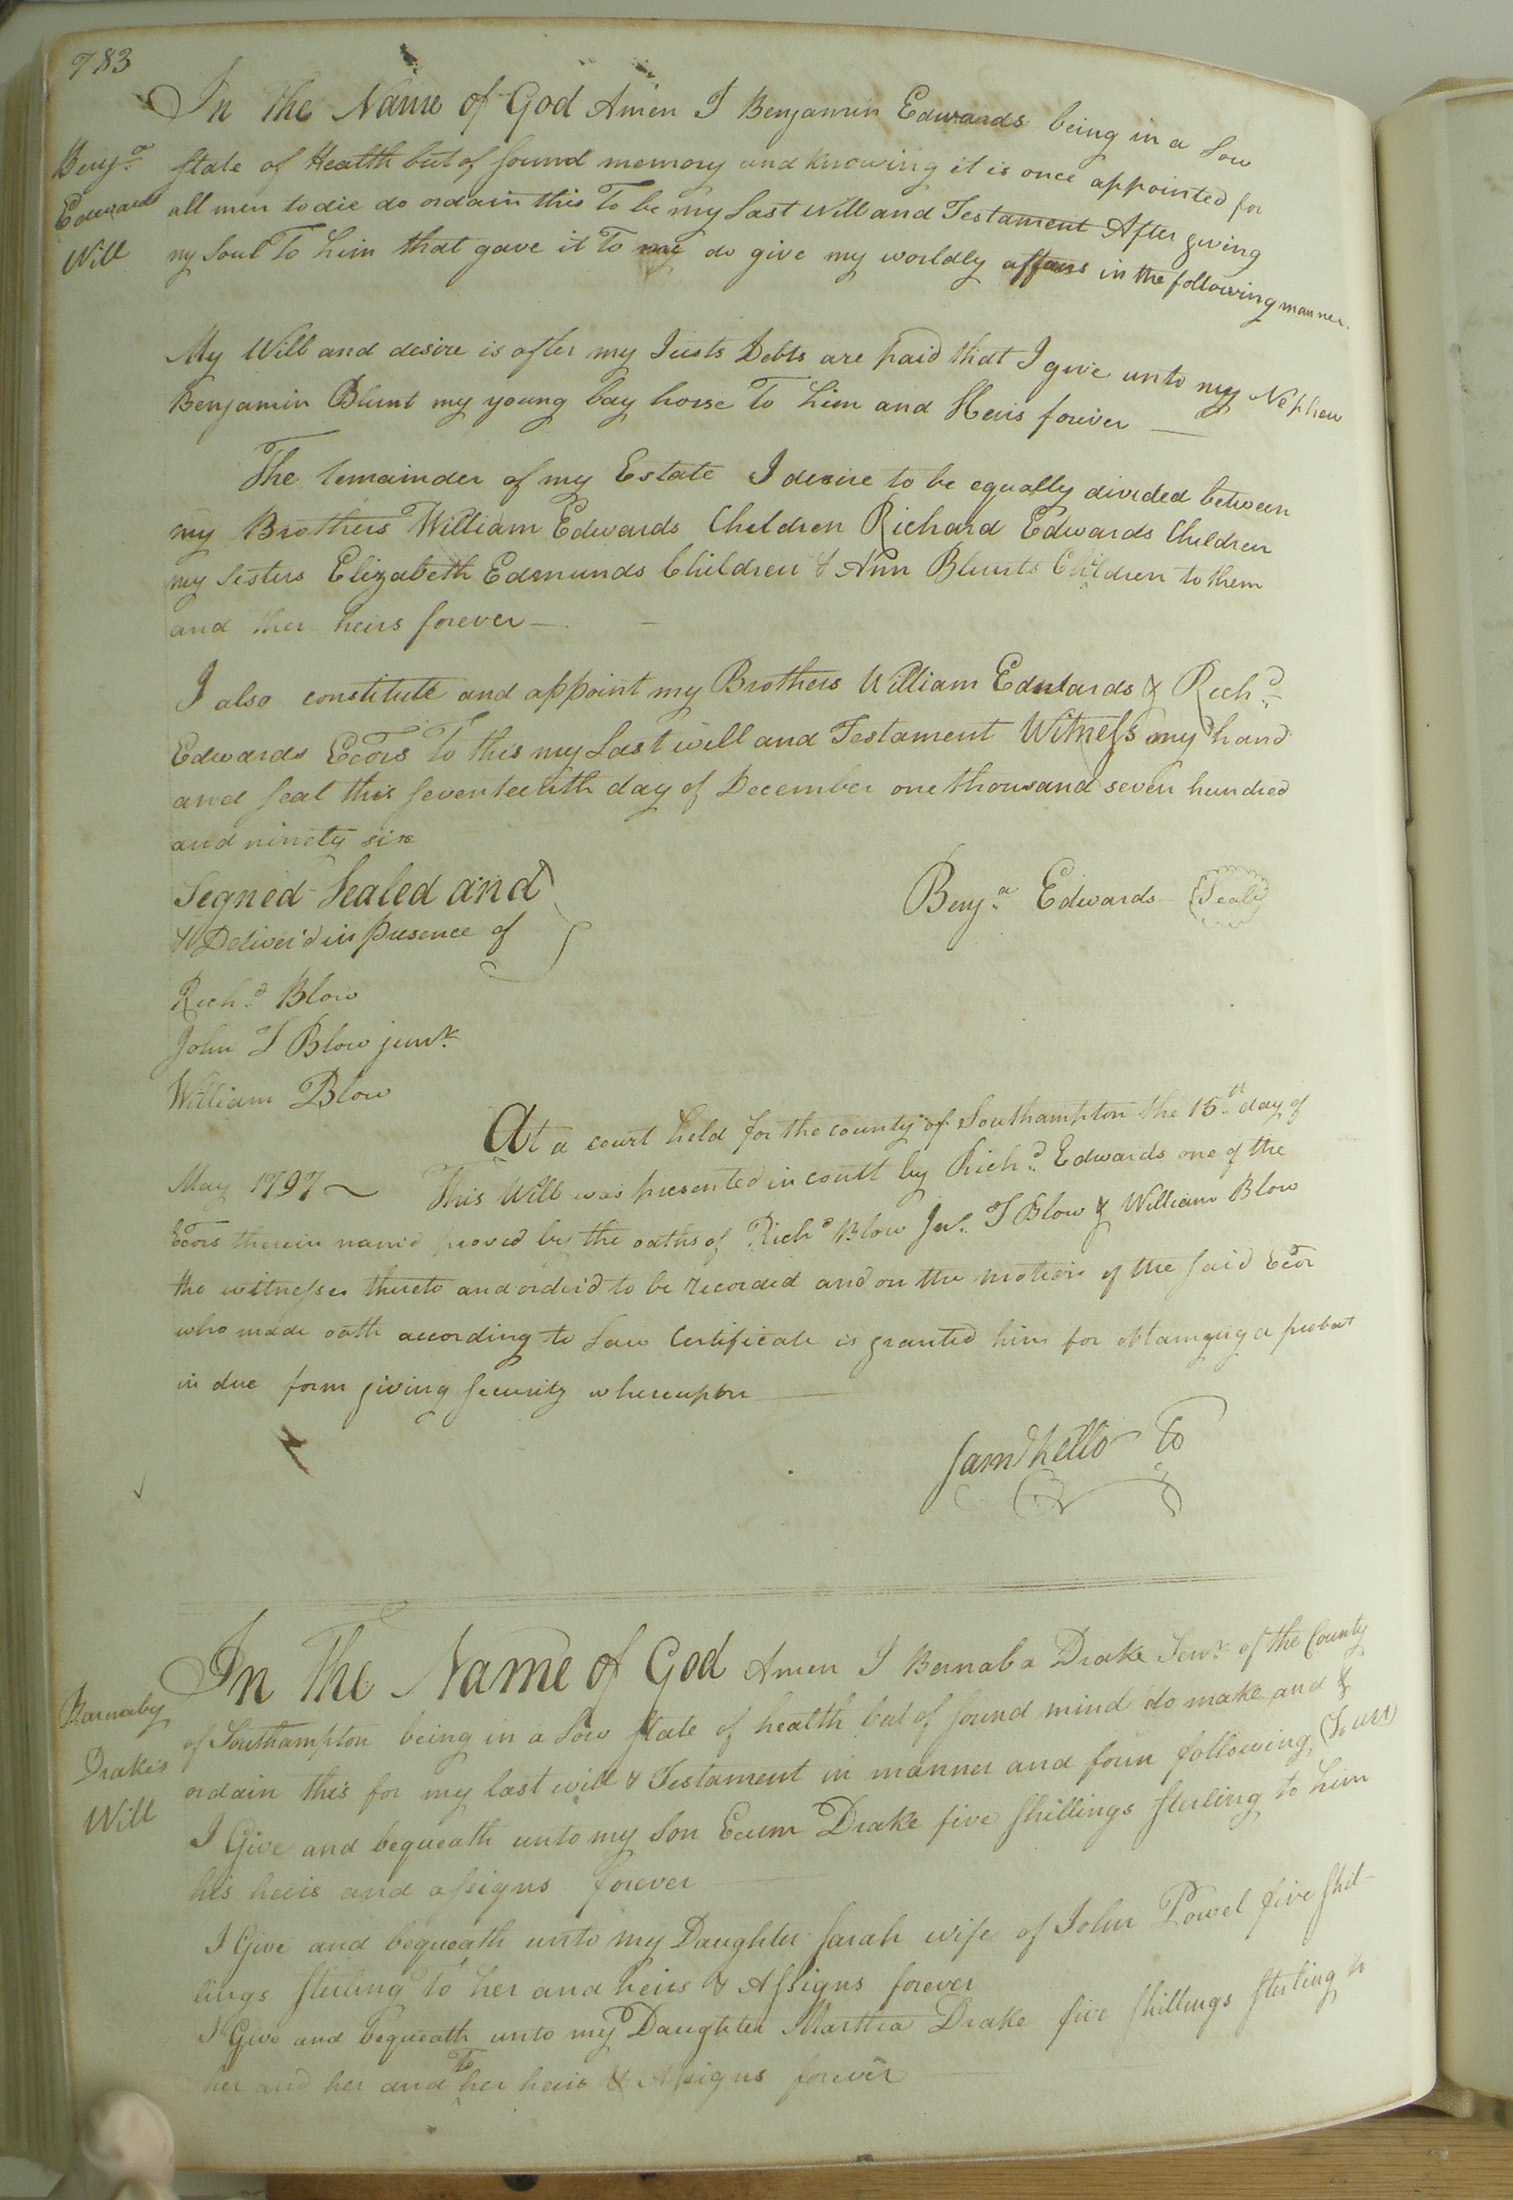 783
In the Name of God Amen I Benjamin Edwards being in a Low
Benjª
Edwards
Will
state of Health but of sound memory and knowing it is once appointed for
all men to die do ordain this To be my Last Will and Testament After giving
my Soul To him that gave it To me do give my worldly affairs in the following manner.
My Will and desire is after my Justs Debts are paid that I give unto my Nephew
Benjamin Blunt my young bay horse To him and Heirs forever —
The remainder of my Estate I desire to be equally divided between
my Brothers William Edwards Children Richard Edwards Children
my Sisters Elizabeth Edmunds Children & Ann Blunts Children to them
and ther heirs forever —
I also constitute and appoint my Brothers William Edwards & Richd
Edwards Ecors To this my Last will and Testament Witness my hand
and seal this seventeenth day of December one thousand seven hundred
and ninety six
Segned Sealed and
Deliver'd in presence of
Benjª Edwards (Seal)
Richd Blow
John T Blow junr
William Blow
At a court held for the county of Southampton the 15th day of
May 1797 — This Will was presented in coutt by Richd Edwards one of the
Ecors therein nam'd proved by the oaths of Richd Blow Jnº T Blow & William Blow
the witnesses thereto and order'd to be recorded and on the motion of the said Ecor
who made oath according to Law Certificate is granted him for obtaingig a probat
in due form giving security whereupon —
Saml Kello
In The Name of God Amen I Barnaba Drake Senr of the County
Barnaby
Drakes
Will
of Southampton being in a Low state of health but of sound mind do make and &
ordain this for my last will & Testament in manner and form following
I Give and bequeath unto my Son Drake five shillings sterling to him
his heirs and assigns forever
I Give and bequeath unto my Daughter Sarah wife of John Powel five shil-
lings sterling to her and heirs & Assigns forever
I Give and bequeath unto my Daughter Martha Drake five shillings sterling to
her and her and To her heirs & Assigns forever